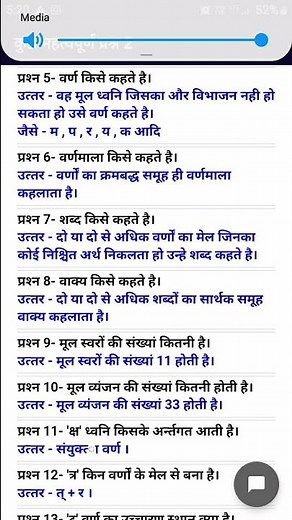 5:20
52%
Media
महत्वपूर्ण प्रश्न 2
प्रश्न 5- वर्ण किसे कहते है।
उत्तर - वह मूल ध्वनि जिसका और विभाजन नही हो
सकता हो उसे वर्ण कहते है।
जैसे - म , प , र , य , क आदि
प्रश्न 6- वर्णमाला किसे कहते है।
उत्तर - वर्णों का क्रमबद्ध समूह ही वर्णमाला
कहलाता है।
प्रश्न 7- शब्द किसे कहते है।
उत्तर - दो या दो से अधिक वर्णों का मेल जिनका
कोई निश्चित अर्थ निकलता हो उन्हे शब्द कहते है।
प्रश्न 8- वाक्य किसे कहते है।
उत्तर - दो या दो से अधिक शब्दों का सार्थक समूह
वाक्य कहलाता है।
प्रश्न 9- मूल स्वरों की संख्यां कितनी है।
उत्तर - मूल स्वरों की संख्यां 11 होती है।
प्रश्न 10- मूल व्यंजन की संख्यां कितनी होती है।
उत्तर - मूल व्यंजन की संख्यां 33 होती है।
प्रश्न 11- 'क्ष' ध्वनि किसके अर्न्तगत आती है।
उत्तर - संयुक्ा वर्ण ।
प्रश्न 12- 'त्र' किन वर्णों के मेल से बना है।
उत्तर - त् + र ।